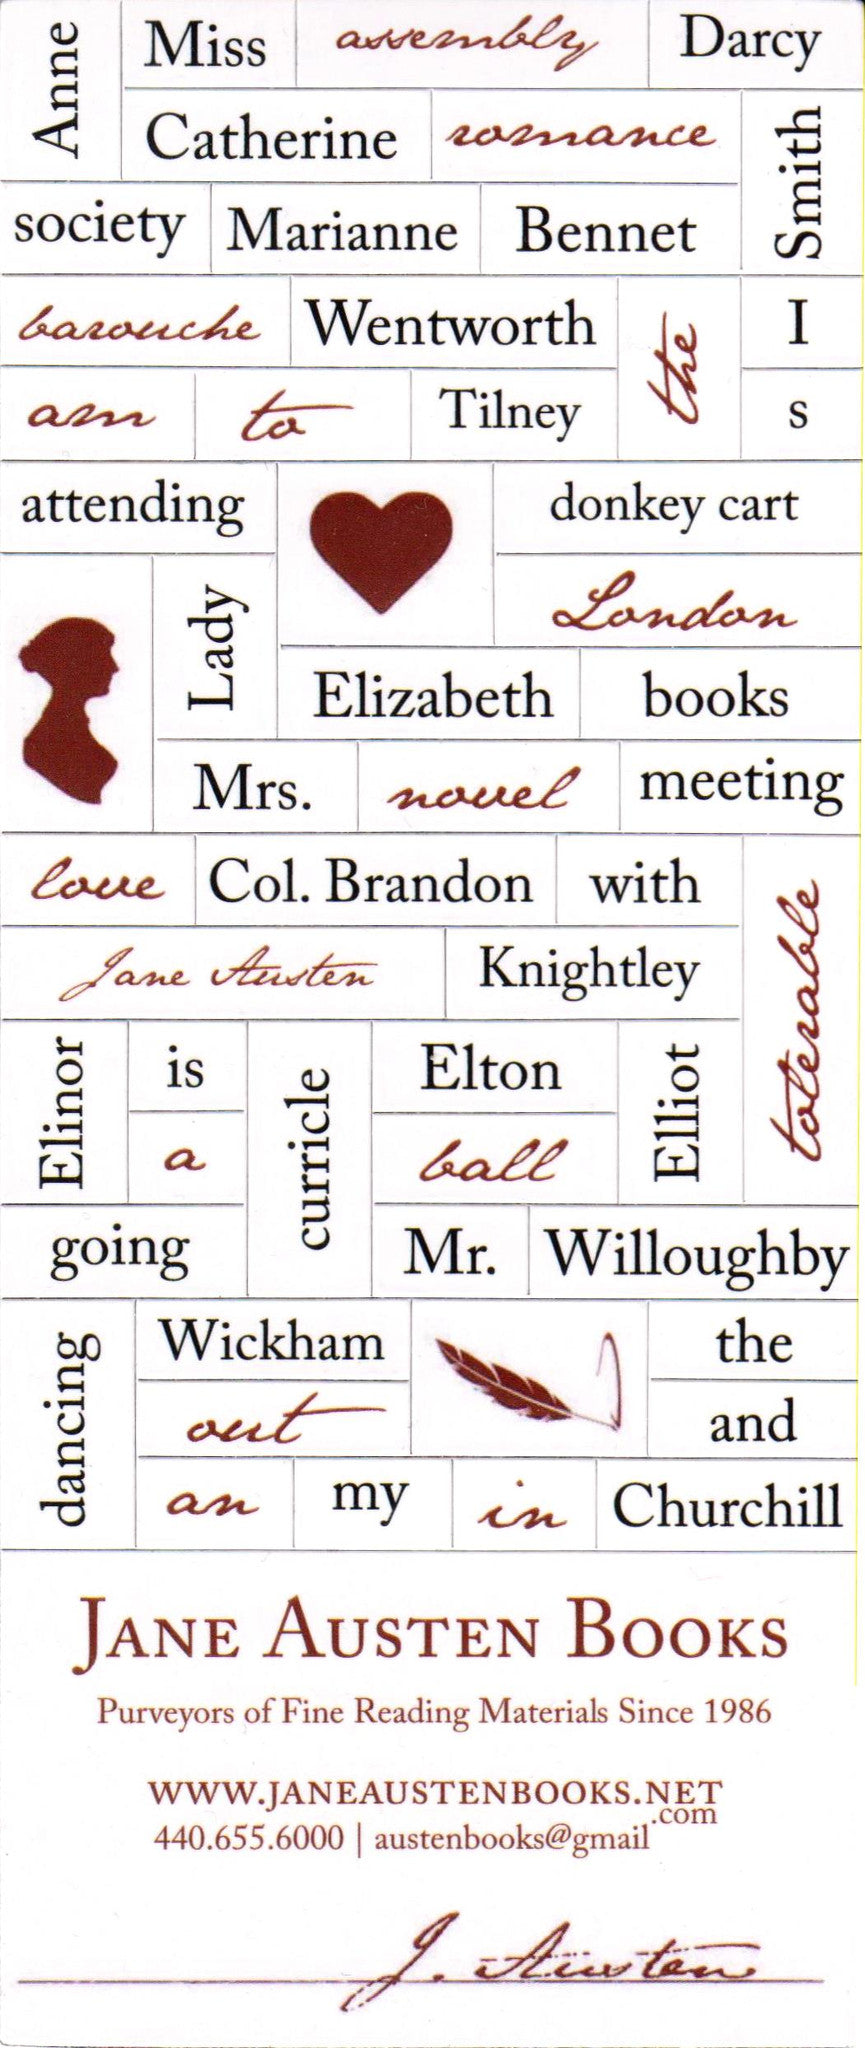 Anne Miss assembly Darcy
Catherine romance Smith
society Marianne Bennet
barouche Wentworth the I
am to Tilney s
attending donkey cart
Lady London
Elizabeth books
Mrs. novel meeting
love Col. Brandon with tolerable
Jane Austen Knightley
Elinor is curricle Elton Elliot
a ball
going Mr. Willoughby
dancing Wickham the
out and
an my in Churchill
JANE AUSTEN BOOKS
Purveyors of Fine Reading Materials Since 1986
WWW.JANEAUSTENBOOKS.NET
440.655.6000 | austenbooks@gmail.com
J. Austen